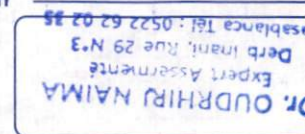 Dr. OUDRHIRI NAIMA
Expert Assermenté
Derb Inani, Rue 29 N°3
asablanca Tél : 0522 62 02 35